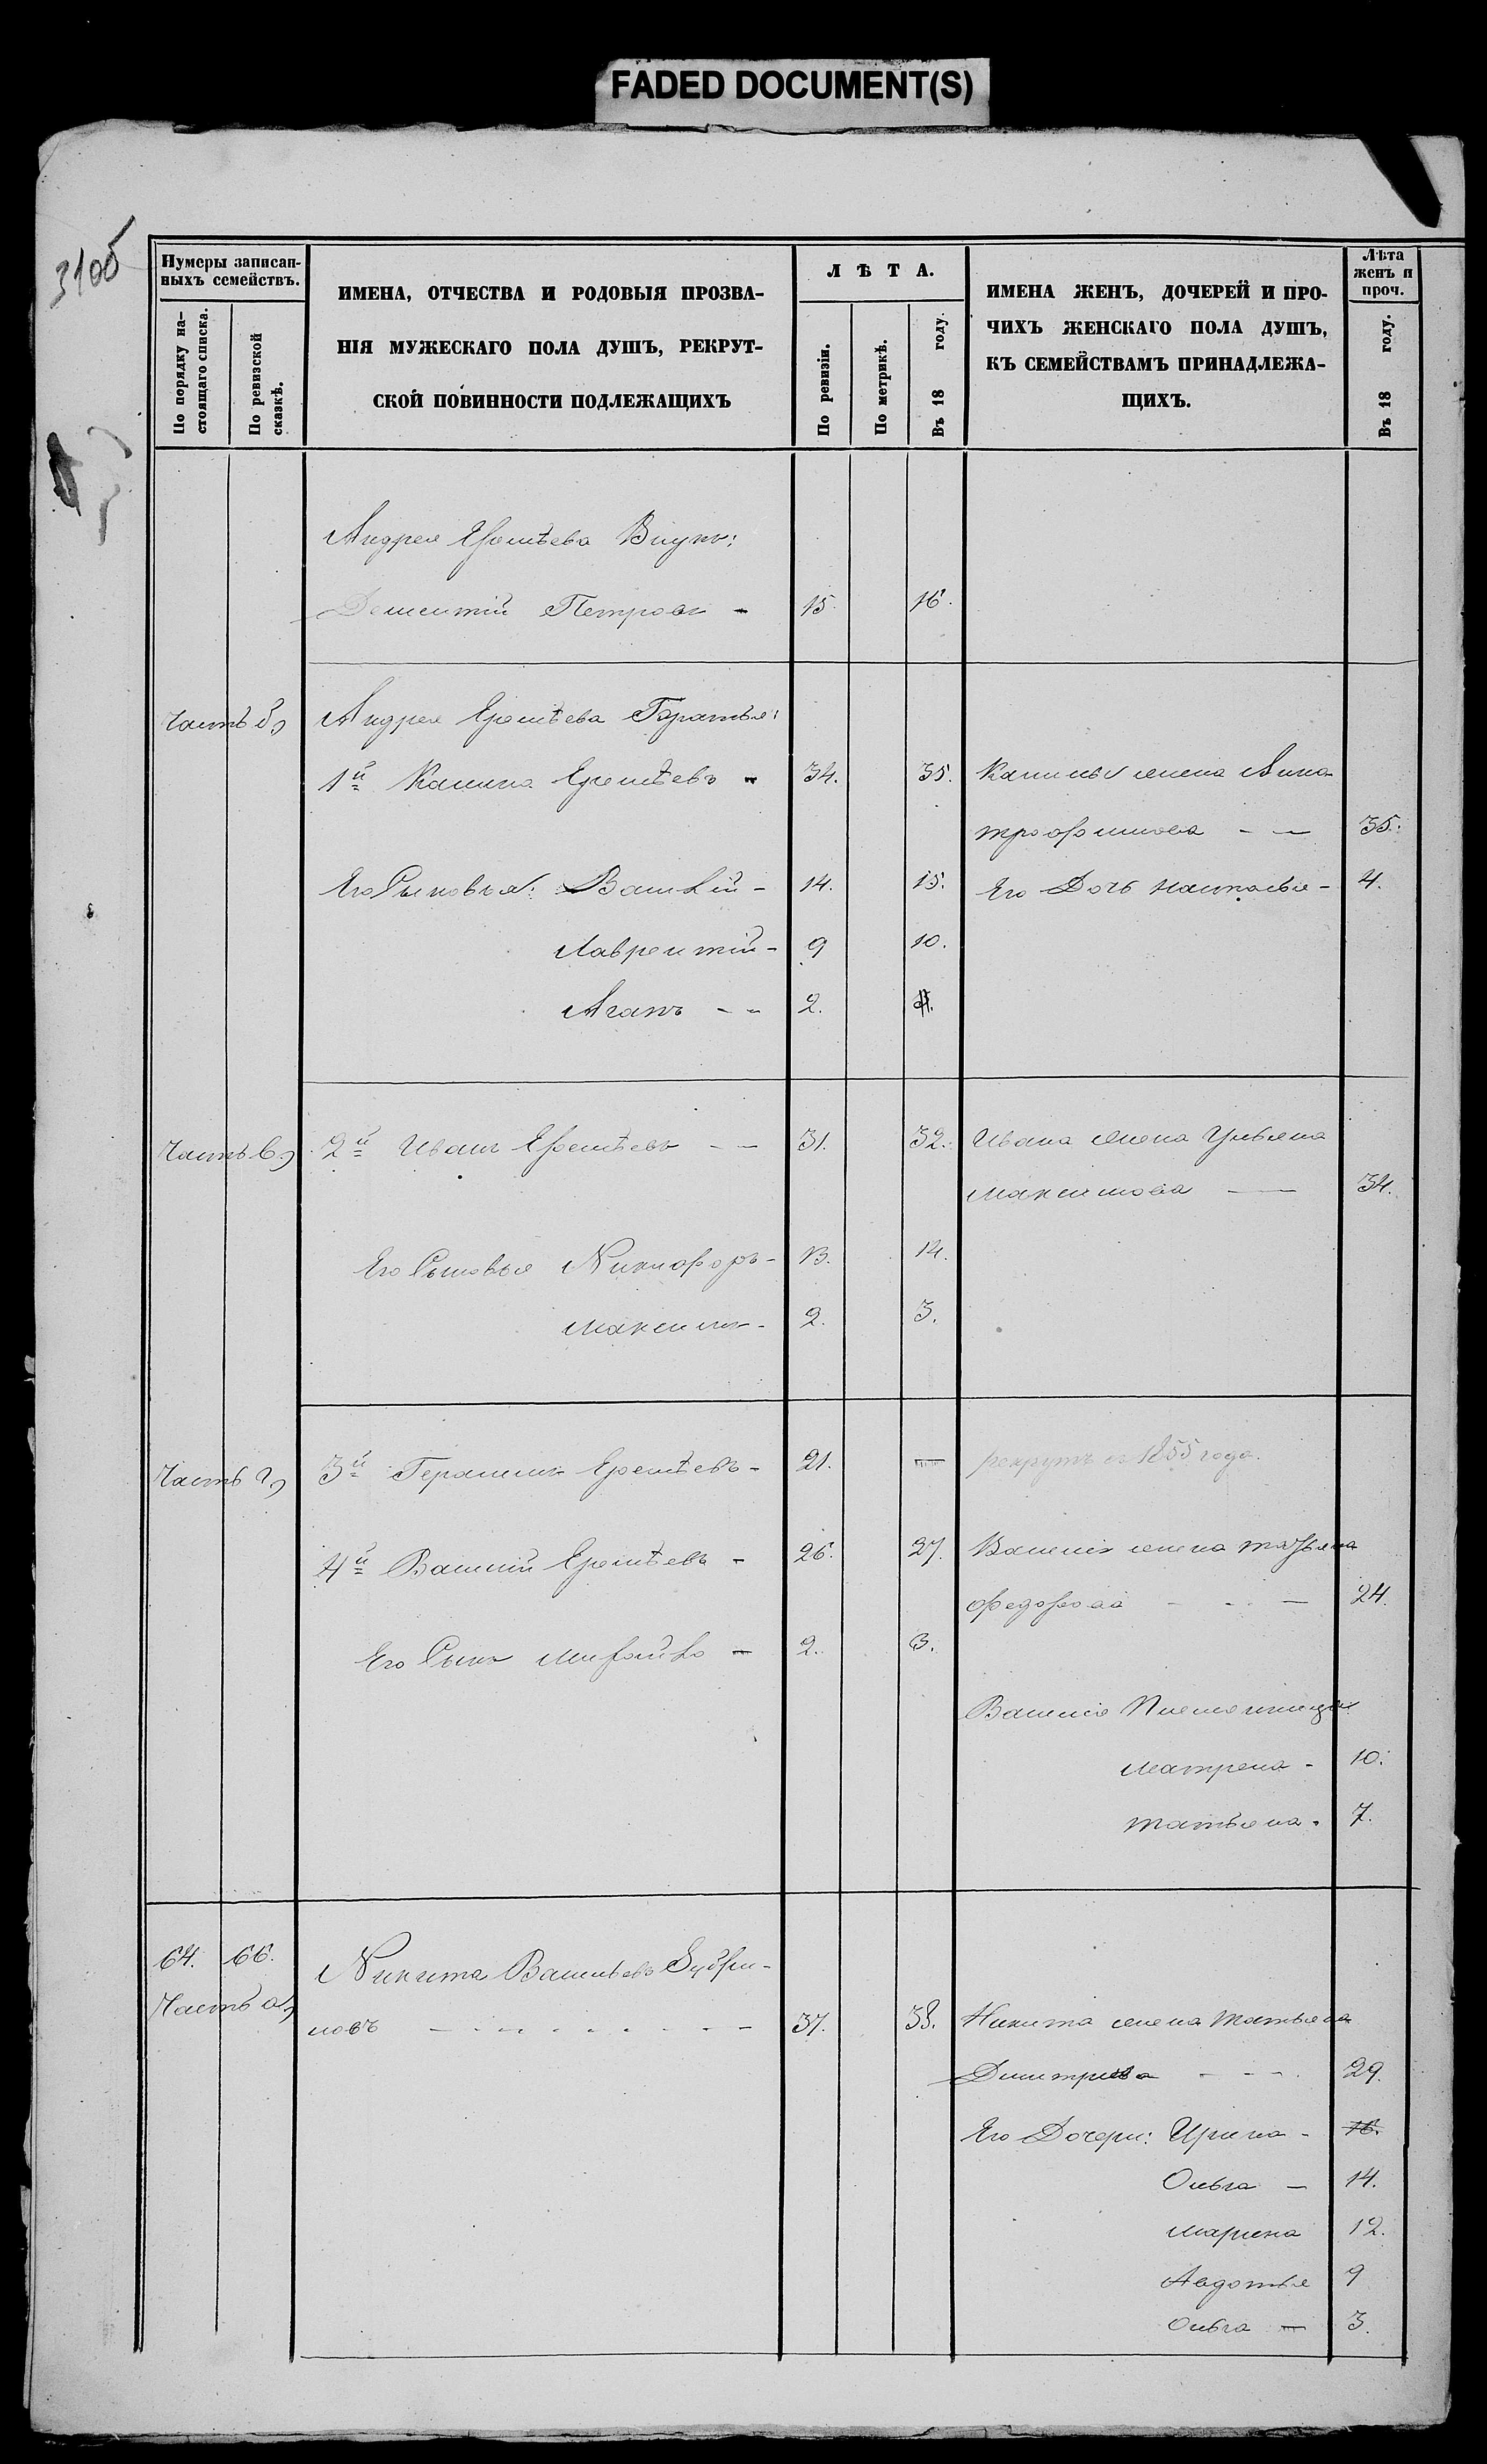 FADED DOCUMENT(S)
310б
Нумеры записан-
ныхъ семействъ.
По порядку на-
стоящаго списка.
По ревизской
сказкѣ.
ИМЕНА, ОТЧЕСТВА И РОДОВЫЯ ПРОЗВА-
НІЯ МУЖЕСКАГО ПОЛА ДУШЪ, РЕКРУТ-
СКОЙ ПОВИННОСТИ ПОДЛЕЖАЩИХЪ
Л Ѣ Т А.
По ревизіи.
По метрикѣ.
Въ 18 году.
ИМЕНА ЖЕНЪ, ДОЧЕРЕЙ И ПРО-
ЧИХЪ ЖЕНСКАГО ПОЛА ДУШЪ,
КЪ СЕМЕЙСТВАМЪ ПРИНАДЛЕЖА-
ЩИХЪ.
Лѣта
женъ и
проч.
Въ 18 году.
Андрея Еремѣева Внукъ:
Дементій Петровъ - 15. 16.
Часть б) Андрея Еремѣева Братья:
1й Калина Еремѣевъ - 34. 35. Калины жена Анна
трофимова - - 35.
Его Сыновья: Василій - 14. 15. Его Дочь Настасья - 4.
Лаврентій - 9 10.
Агапъ - - 2.
Часть в) 2й Иванъ Еремѣевъ - - 31. 32. Ивана жена Ульяна
Максимова - 34.
Его Сыновья Никифоръ - 13. 14.
Максимъ - 2. 3.
Часть г) 3й Герасимъ Еремѣевъ - 21. — рекрутъ съ 1855 года.
4й Василій Еремѣевъ - 26. 27. Василія жена Татьяна
Федорова - - - 24.
Его Сынъ Михайло - 2. 3.
Василія Племянницы:
Матрена - 10.
Татьяна - 7.
64. 66. Никита Васильевъ
Часть а)
новъ - - - - - - - 37. 38. Никита жена Татьяна
Дмитриева - - - 29.
Его Дочери: Ирина - 16.
Ольга - 14.
Марина 12.
Авдотья 9
Ольга - 3.